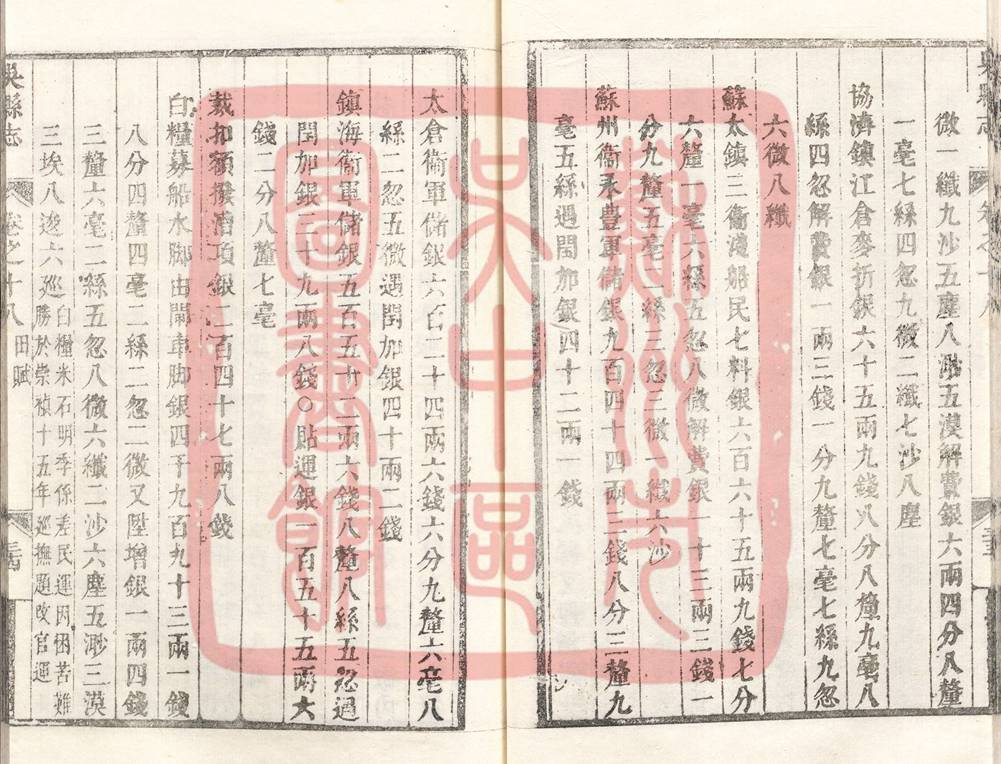 微一纖九沙五塵八渺五漠解費銀六兩四分八釐
一毫七絲四忽九微二纖七沙八塵
協濟鎮江倉麥折銀六十五兩九錢八分八釐九毫八
絲四忽解費銀一兩三錢一分九釐七毫七絲九忽
六微八纖
蘇太鎮三衛淺船民七料銀六百六十五兩九錢七分
六釐一毫六絲五忽八微解費銀一十三兩三錢一
分九釐五毫二絲三忽三微一纖六沙
蘇州衛永豊軍儲銀九百四十四兩二錢八分三釐九
毫五絲遇閏加銀四十二兩一錢
太倉衛軍儲銀六百二十四兩六錢六分九釐六毫八
絲二忽五微遇閏加銀四十兩二錢
鎮海衛軍儲銀五百五十二兩六錢八釐八絲五忽遇
閏加銀三十九兩八錢○貼運銀一百五十五兩六
錢二分八釐七毫
裁扣額撥漕項銀二百四十七兩八錢
白糧募船水脚由閘車脚銀四千九百九十三兩一錢
八分四釐四毫二絲二忽二微又陞增銀一兩四錢
三釐六毫二絲五忽八微六纖二沙六塵五渺三漠
三埃八逡六巡白糧米石明季係差民運因困苦難
勝於崇禎十五年巡撫題改官運
吳縣志
卷之十八 田賦
蘇州市吳中區圖書館